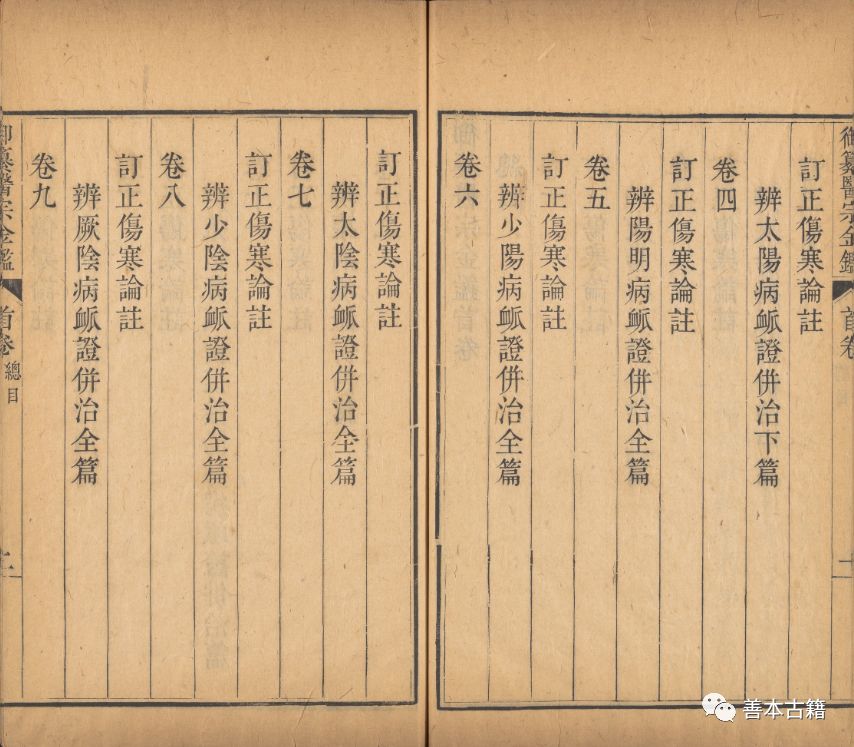 訂正傷寒論註
辨太陽病衇證併治下篇
卷四
訂正傷寒論註
辨陽明病衇證併治全篇
卷五
訂正傷寒論註
辨少陽病衇證併治全篇
卷六
訂正傷寒論註
辨太陰病衇證併治全篇
卷七
訂正傷寒論註
辨少陰病衇證併治全篇
卷八
訂正傷寒論註
辨厥陰病衇證併治全篇
卷九
御纂醫宗金鑑
首卷
總目
御纂醫宗金鑑
首卷
善本古籍